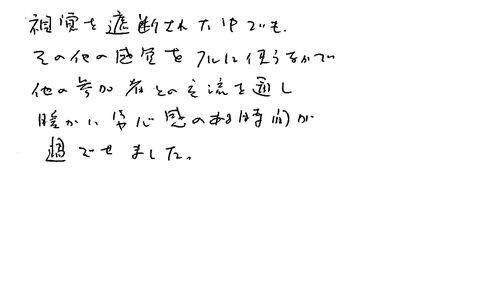 視覚を遮断された中でも、
その他の感覚をフルに使うなかで
他の参加者との交流を通し
暖かい安心感のある時間が
過ごせました。